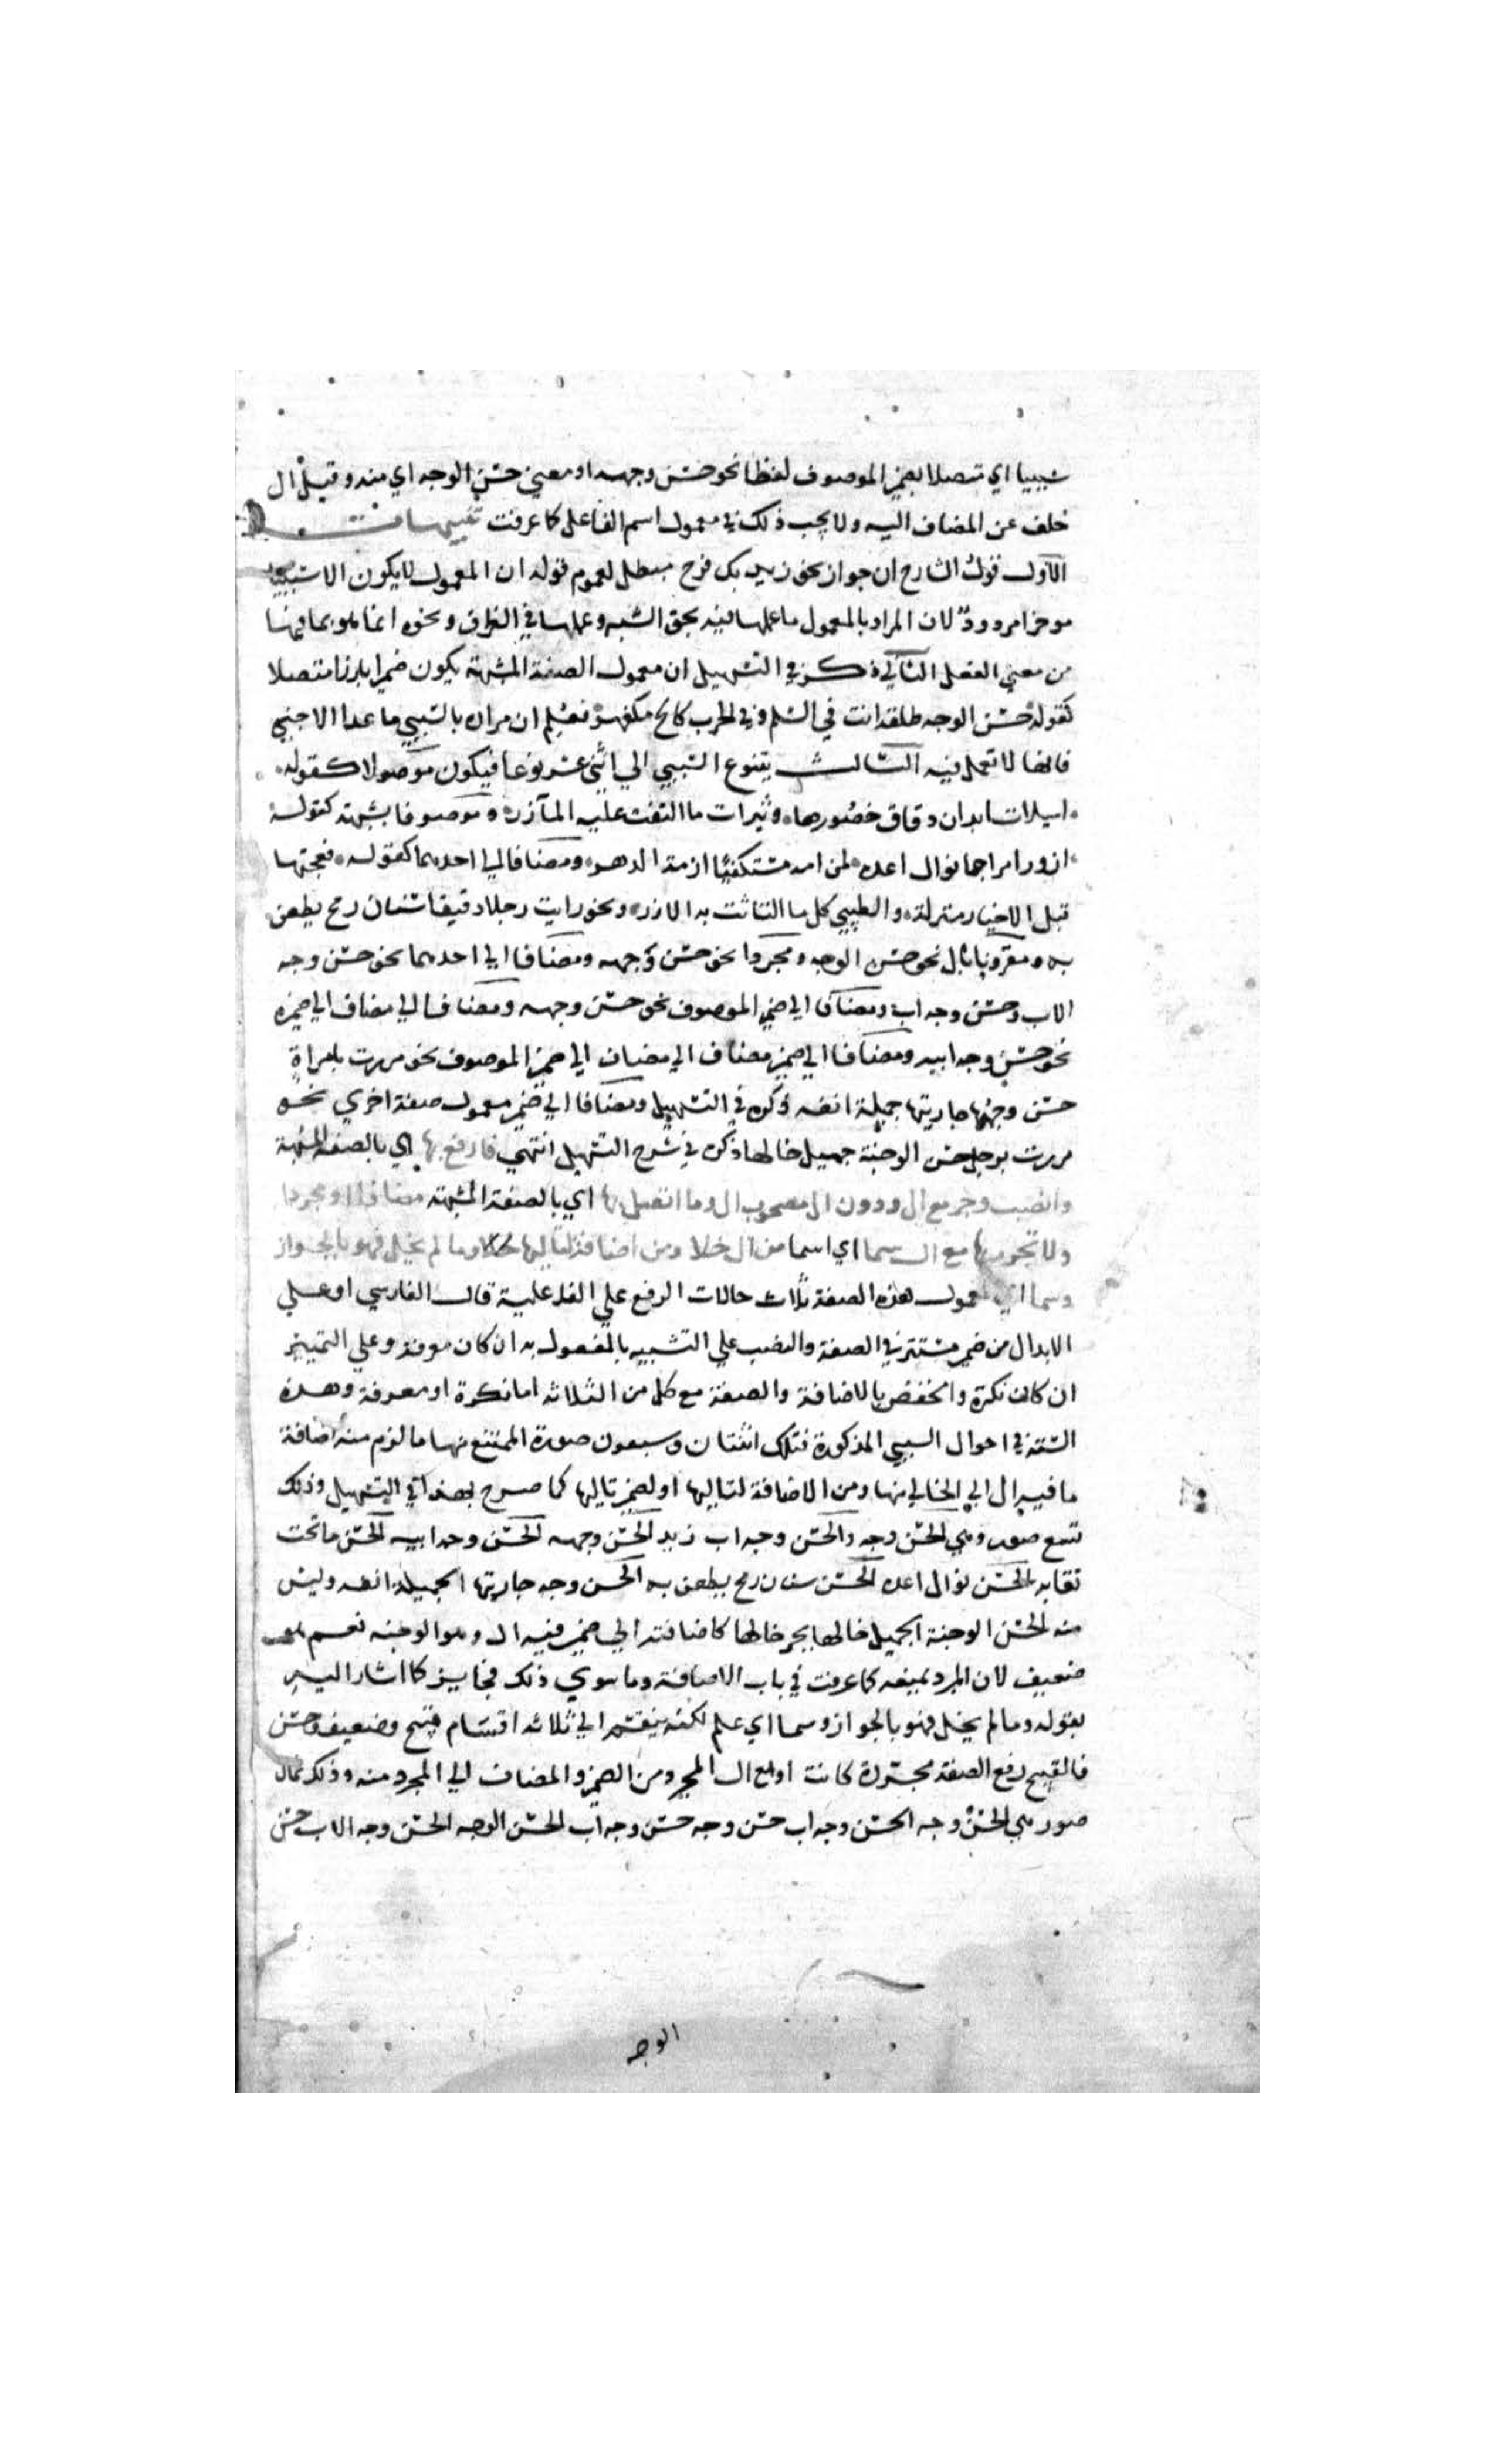 سببيا اي متصلا بضمير الموصوف لفظا نحو حسن وجهه او معني نحو حسن الوجه اي منه وقيل ال
خلف عن المضاف اليه ولا يجب ذلك في معمول اسم الفاعل كما عرفت تنبيهات
الاول قول الشارح ان جواز نحو زيد بك فرح مبطل لعموم قوله ان المعمول لا يكون الا سببيا
موخرا مردود لان المراد بالمعمول ما عملها فيه بحق الشبه وعملها في الظرف ونحوه انما هو بما فيها
من معني الفعل الثاني ذكر في التسهيل ان معمول الصفة المشبهة يكون ضميرا بارزا متصلا
كقوله حسن الوجه طلقه انت في السلم وفي الحرب كالح مكفهر فعلم ان مراده بالسببي ما عدا الاجنبي
فانها لا تعمل فيه الثالث يتنوع السببي الي اثني عشر نوعا فيكون موصولا كقوله
اسيلات ابدان دقاق خصورها وثيرات ما التفت عليه المآزر وموصوفا يشبهه كقوله
ازور امرا جما نوال اعده لمن امه مستكفيا ازمة الدهر ومضافا الي احدهما كقوله فعجتها
قبل الاخيار منزلة والطيبي كل ما التاثت به الازر ونحو رايت رجلا دقيقا سنان رمح يطعن
به ومقرونا بال نحو حسن الوجه ومجردا نحو حسن وجهه ومضافا الي احدهما نحو حسن وجه
الاب وحسن وجه اب ومضافا الي ضمير الموصوف نحو حسن وجهه ومضافا الي مضاف الي ضميره
نحو حسن وجه ابيه ومضافا الي ضمير مضاف الي مضاف الي ضمير الموصوف نحو مررت بامراة
حسن وجه جاريتها جميلة انفه ذكره في التسهيل ومضافا الي ضمير معمول صفة اخري نحو
مررت برجل حسن الوجنة جميل خالها ذكره في شرح التسهيل انتهي فارفع بها اي بالصفة المشبهة
وانصب وجر مع ال ودون ال مصحوب ال وما اتصل بها اي بالصفة المشبهة مضافا او مجردا
ولا تجرر بها مع ال سما اي اسما من ال خلا ومن اضافة لتاليها وما لم يخل فهو بالجواز
وسما اي لمعمول هذه الصفة ثلاث حالات الرفع علي الفاعلية قال الفارسي او علي
الابدال من ضمير مستتر في الصفة والنصب علي التشبيه بالمفعول به ان كان معرفة وعلي التمييز
ان كان نكرة والخفض بالاضافة والصفة مع كل من الثلاثه اما نكرة او معرفة وهذه
الستة في احوال السببي المذكورة فتلك اثنتان وسبعون صورة الممتنع منها ما لزم منه اضافة
ما فيه ال الي الخالي منها ومن الاضافة لتاليها او لضمير تاليها كما صرح بهذا في التسهيل وذلك
تسع صور وهي الحسن وجه والحسن وجه اب زيد الحسن وجهه الحسن وجه ابيه الحسن ما تحت
نقابه الحسن نوال اعده الحسن سنان رمح يطعن به الحسن وجه جاريتها الجميلة انفه وليس
منه الحسن الوجنة الجميل خالها بجر خالها لاضافته الي ضمير فيه ال وهو الوجنة نعم هو
ضعيف لان المبرد يمنعه كما عرفت في باب الاضافة وما سوي ذلك فجايز كما اشار اليه
بقوله وما لم يخل فهو بالجواز وسما اي علم لكنه ينقسم الي ثلاثه اقسام قبيح وضعيف وحسن
فالقبيح رفع الصفة مجردة كانت او مع ال المجرد من الضمير والمضاف الي المجرد منه وذلك ثمان
صور هي الحسن وجه الحسن وجه اب حسن وجه حسن وجه اب الحسن الوجه الحسن وجه الاب حسن
الوجه